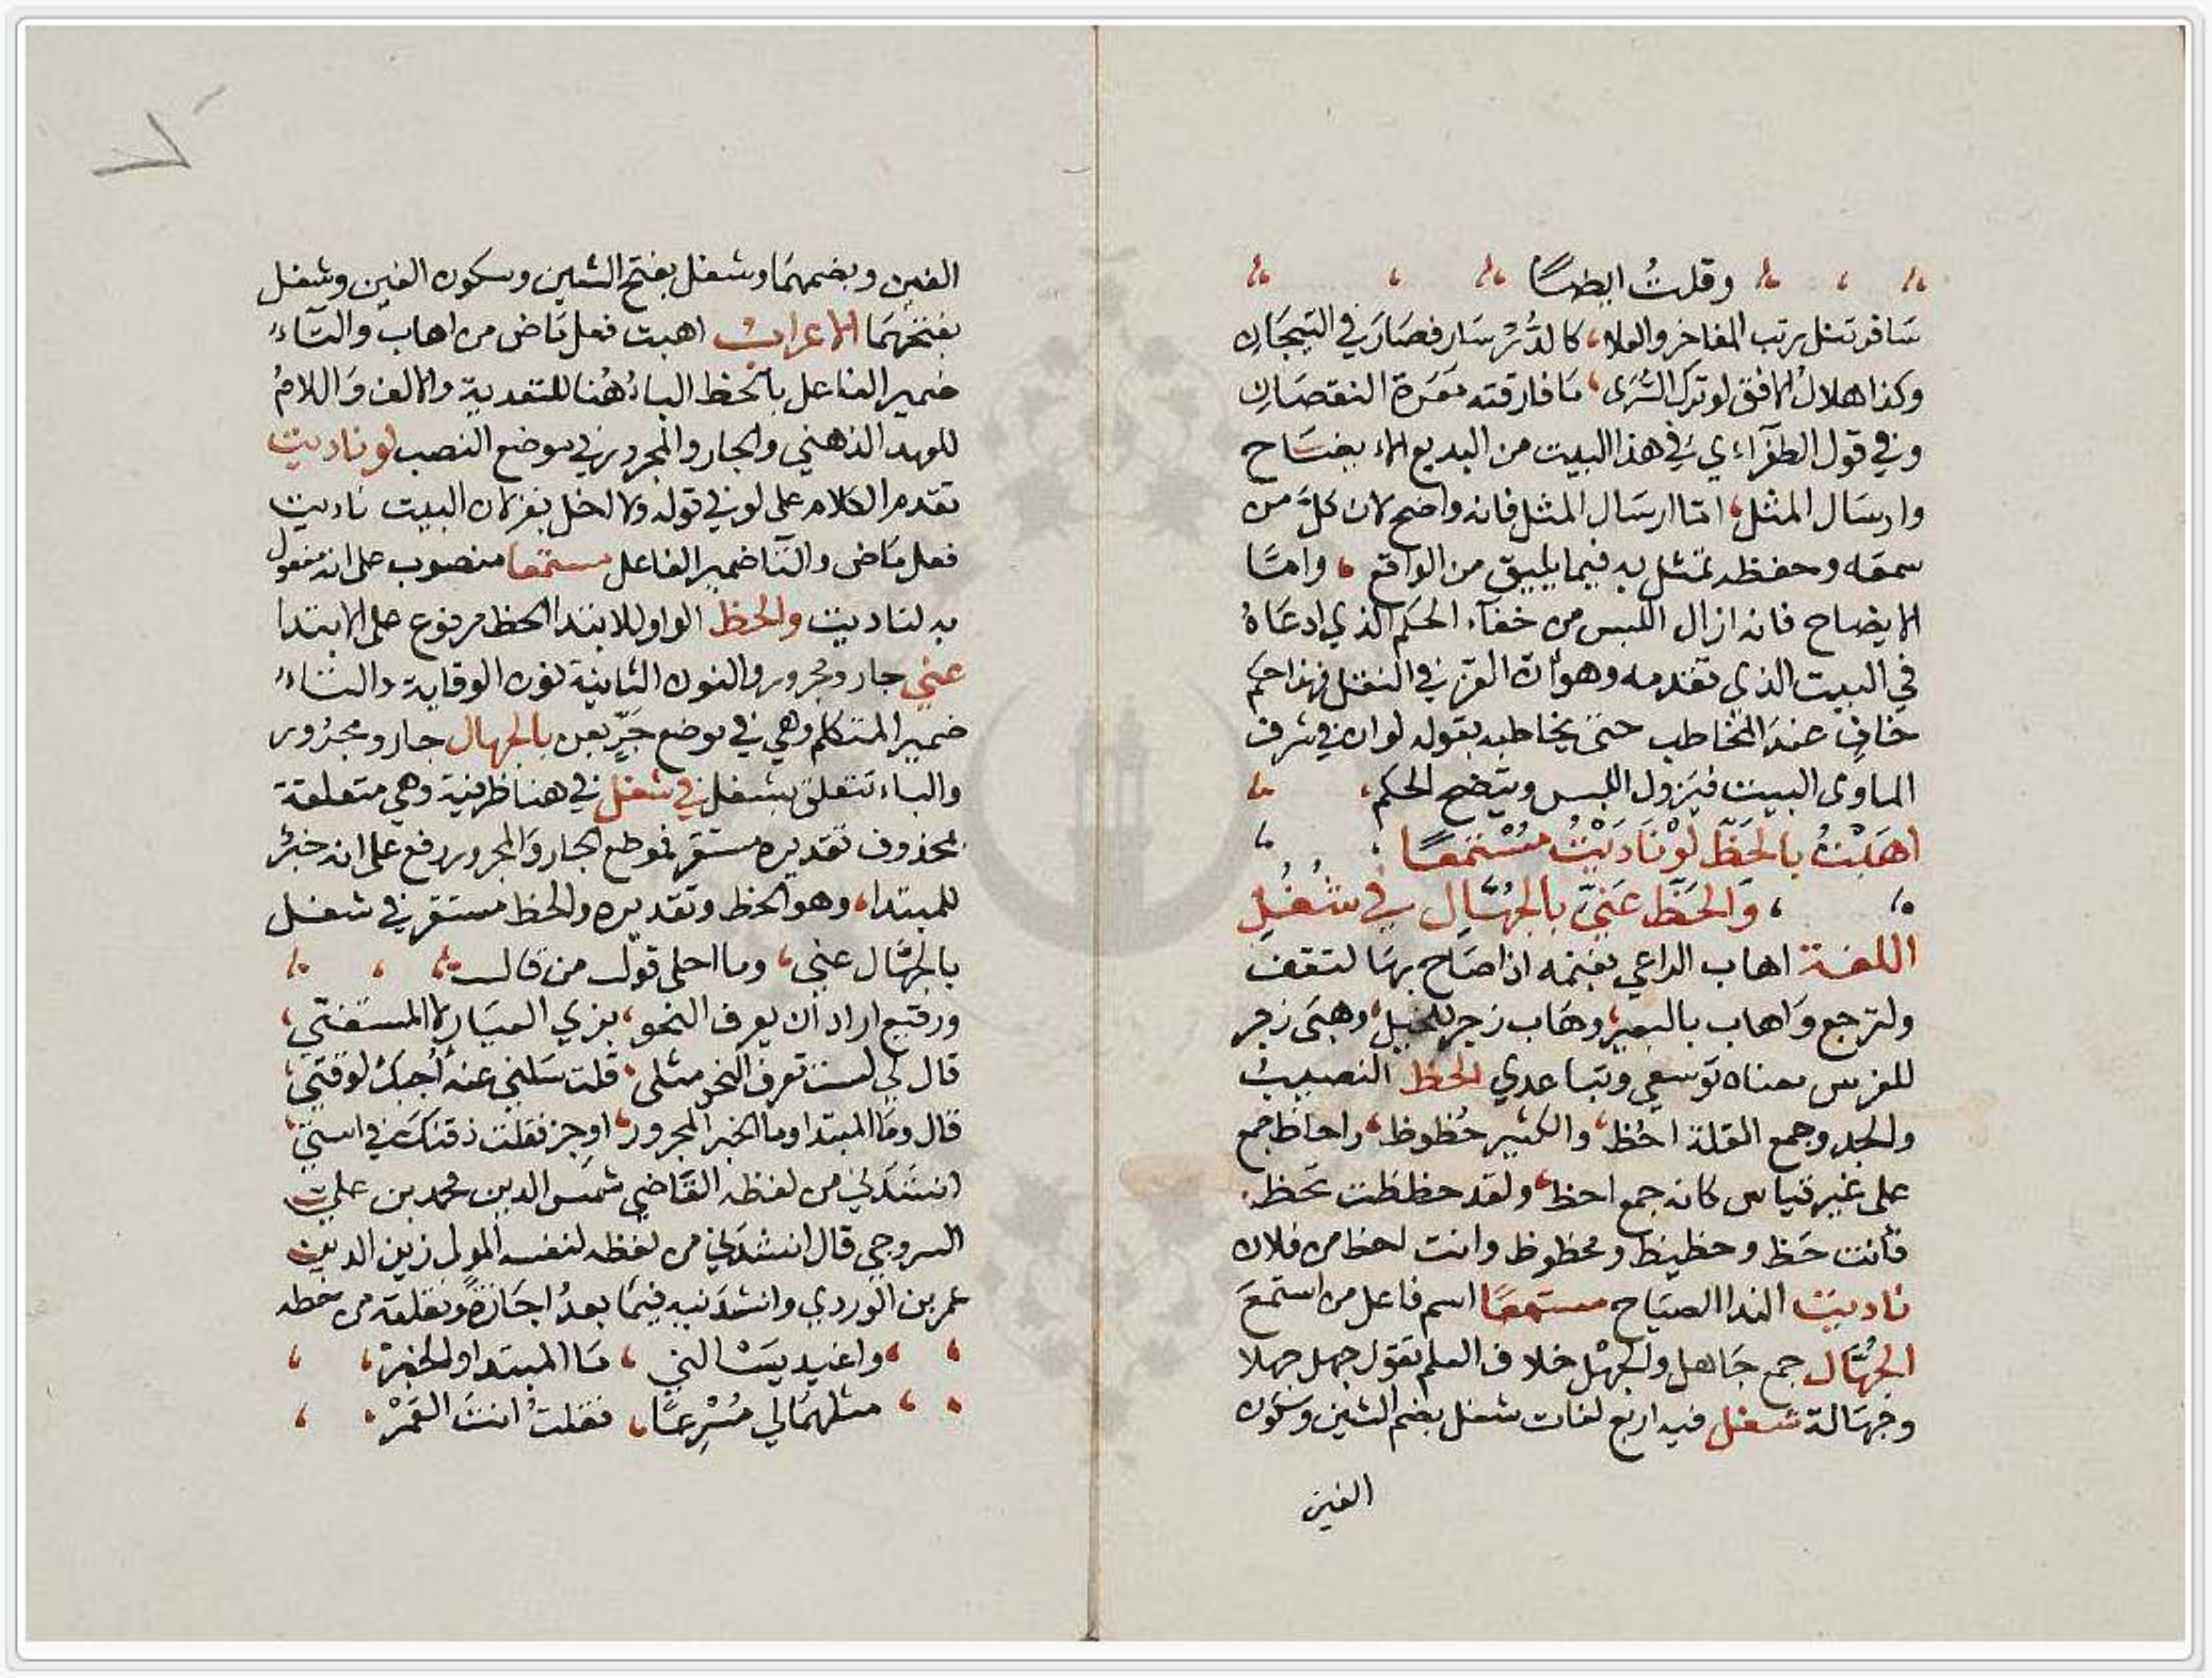 وقلتُ ايضًا
سَافر تنل رتب المفاخر والعلا، كالدُّرّ سَار فصَارَ في التيجَان
وكذا هلالُ الافق لو ترك السُّرَى، مَا فارقته مَعَرة النقصَان
وفي قول الطغرآءي في هذا البيت من البديع الايضَاح
وارسَال المثل، امّا ارسَال المثل فانه واضح لان كلَّ من
سمعَه وحفظه تمثل به فيما يليق من الواقع، وامّا
الايضاح فانه ازال اللبس من خفآء الحكم الذي ادعَاهُ
في البيت الذي تقدمه وهو أن العزّ في النقل فهذا حكم
خافٍ عند المخاطب حتى يخاطبه بقوله لو ان في شرف
الماوى البيت فيَزول اللبس ويتضح الحكم،
اهَبْتُ بالحَظّ لَوْ نَادَيْتُ مُسْتَمعًا
، وَالحَظّ عَنِّيَ بالجُهَّال في شُغُلِ
اللغة اهاب الراعي بغنمه اذا صَاح بهَا لتقف
ولترجع وَاهاب بالبعير، وهَاب زجر للخيل، وهبَى زجر
للفرس معناه توسعي وتبَاعدي الحظ النصيبُ
والجد وجمع القلة احُظ، والكثير حُظوظ، واحاظ جمع
على غير قياس كانه جمع احظ، ولقد حظظت تحظ
فأنت حَظ وحظيظ ومحظوظ وانت احظ من فلان
ناديت الندا الصيَاح مستمعًا اسم فاعل من استمعَ
الجُهَّال جمع جَاهل والجهْل خلاف العلم تقول جهل جهلا
وجهَالة شغل فيه اربع لغات شغل بضم الشين وسكون
الغين
الغين وبضمهمَا وشغل بفتح الشين وسكون الغين وشغل
بفتحهمَا الاعرابُ اهبت فعل مَاض من اهاب والتَآءُ
ضمير الفاعل بالحظ البا،ُ هُنا للتعدية والالف وَاللامُ
للعهد الذهني والجار والمجرور في موضع النصب لو ناديت
تقدم الكلام على لو في قوله ولا اخل بغزلان البيت ناديت
فعل مَاض والتا ضمير الفاعل مستمعا منصوب على انه مفعول
به لناديت والحظ الواو للابتدا الحظ مرفوع على الابتدا
عني جار ومجرور والنون الثانية نون الوقاية واليَاءُ
ضمير المتكلم وهي في موضع جَرّ بعن بالجهال جار ومجرُور
والباء تتعلق بشغل في شغل في هنا ظرفية وهي متعلقة
بمحذوف تقديره مستقر فموضع الجار وَالمجرور رفع على انه خبرُ
للمبتدا، وهو الحظ وتقديره والحظ مستقر في شغل
بالجهَّال عني، وما احلى قول من قال
ورقيع اراد أن يعرف النحو، بزي العيَارة المستفتي،
قال لي لست تعرف النحو مثلي، قلت سَلني عنه أُجبكَ لوقتي،
قال ومَا المبتدا وما الخبر المجرور، اوجز فقلت ذقنكَ في استي،
انشَدَني من لفظه القَاضي شمس الدين محمد بن علي
السروجي قال انشدَني من لفظه لنفسه المولى زين الدين
عمر بن الوردي وانشدَنيه فيمَا بعدُ اجَازةً ونقلته من خطه
، واغيد يسَالني، مَا المبتدا والخبرْ،
، مثلهمَا لي مُسْرِعًا، فقلتُ انتَ القمَرْ،